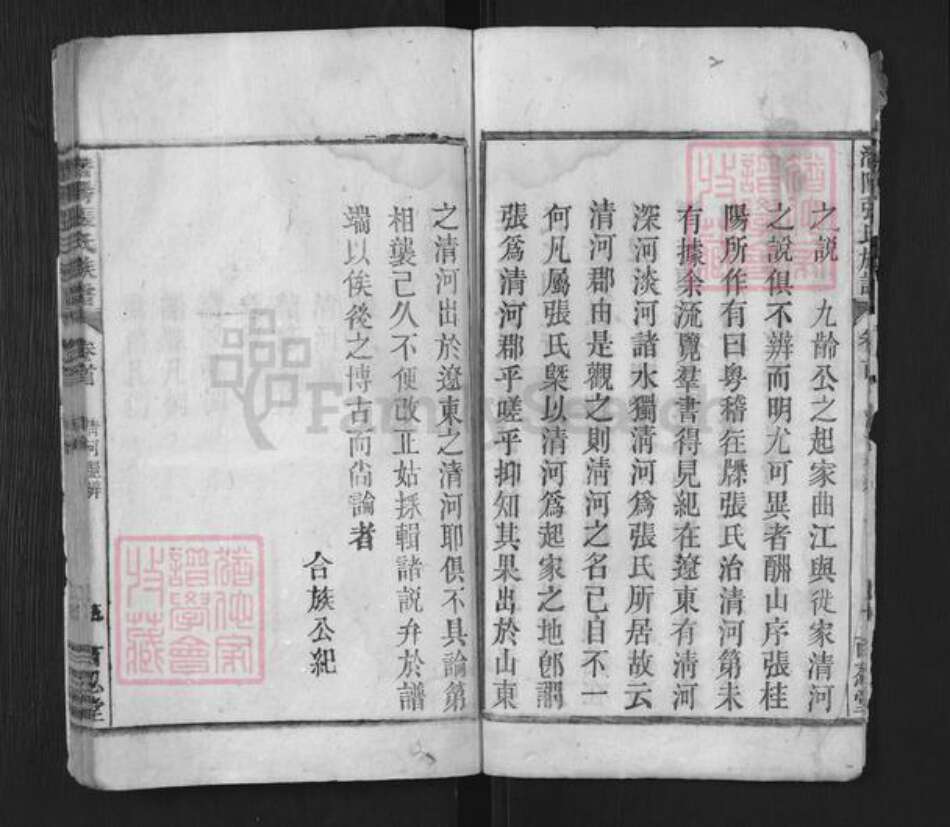 之說　九齡公之起家曲江與徙家清河
之說俱不辨而明尤可異者酬山序張桂
陽所作有曰粤稽在牒張氏治清河第未
有據余流覽羣書得見紀在遼東有清河
深河淡河諸水獨清河爲張氏所居故云
清河郡由是觀之則清河之名已自不一
何凡屬張氏槩以清河爲起家之地卽謂
張爲清河郡乎嗟乎抑知其果出於山東
之清河出於遼東之清河耶俱不具論第
相襲已久不便改正姑採輯諸說弁於譜
端以俟後之博古而尙論者
合族公紀
張氏族譜
卷首
清河郡辨
五
百忍堂
FamilySearch